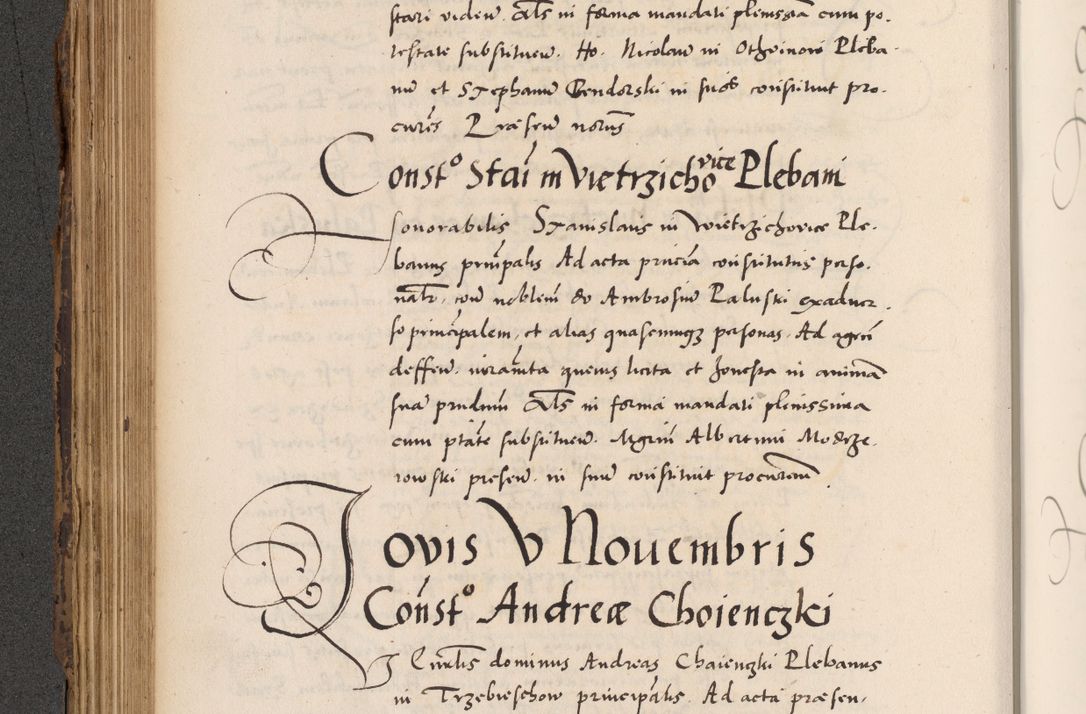 stari videntur. Als in forma mandati plenissia cum po-
testate substituen. Ho. Nicolaum in Othvinow Pleba-
num et Stephanum Gendorski in suos constituit pro-
cures Presen notus
Const° Stai in Vietrzichovice Plebani
Honorabilis Stanislaus in Wietrzichovice Ple-
banus prinpalis Ad acta pnicia constitutus perso-
nalr. cum noblem do Ambrosium Paluski exaduer-
so principalem, et alias quascumqz personas. Ad agen
deffen. iuramta quevis licita et honesta in animam
suam prndnm Als in forma mandati plenissima
cum ptate substituen. Mgrum Albertum Modrze-
rowski presen. in suum constituit procurem.
Jovis V Nouembris
Const° Andreæ Choienczki
Venlis dominus Andreas Chaienzki Plebanus
in Trzebieschow principalis. Ad acta præsen-